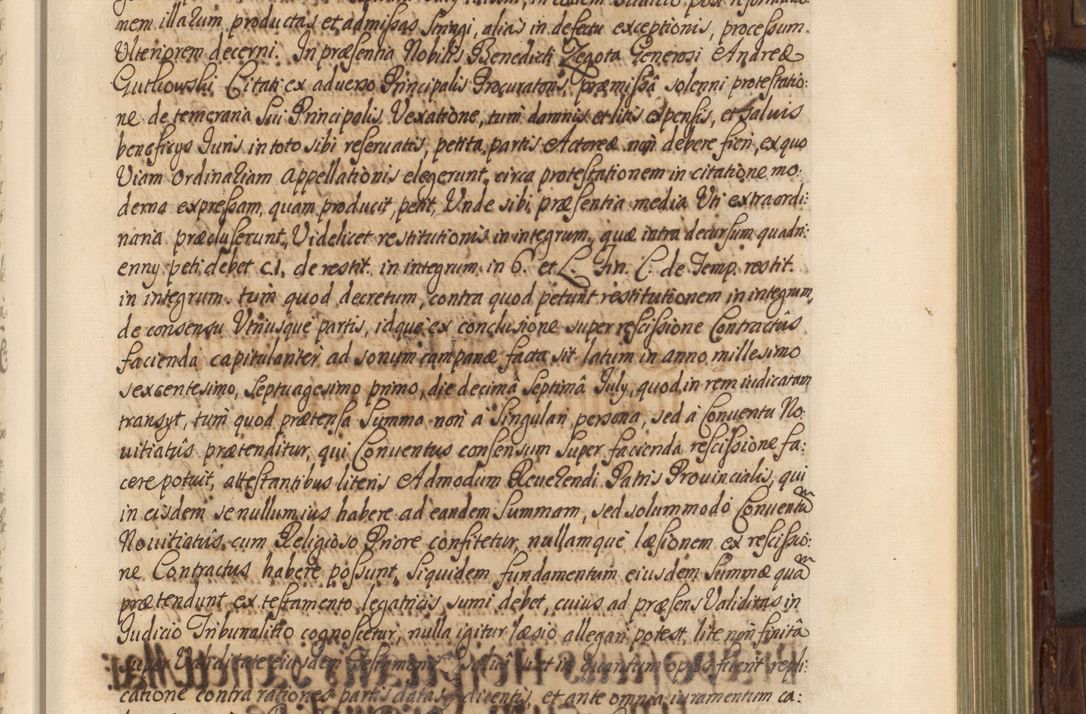 nem illarum, productas et admissas stringi, alias in defectu exceptionis, processum
Ulteriorem decerni. In præsentia Nobilis Benedicti Zegota Generosi Andreæ
Gutkowski Citati ex adverso Principalis Procuratoris, præmissâ solenni protestatio:
ne de temeraria sui Principalis Vexatione, tum damnis et litis expensis, et salvis
beneficijs Juris in toto sibi reservatis, petita partis Actoreæ non debere fieri, ex quo
Viam Ordinariam Appellationis elegerunt, circa protestationem in citatione mo:
derna expressam, quam producit, petit, Unde sibi præsentia media Uti extraordi:
naria præcluserunt, Videlicet restitutionis in integrum, quæ intra decursum quadri:
enny peti debet c. 1. de restit. in integrum in 6. et L. Fin. C. de Temp. restit.
in integrum. tum quod decretum, contra quod petunt restitutionem in integrum,
de consensu Utriusque partis, idque ex conclusione super rescissione Contractûs
facienda capitulariter ad sonum campanæ facta sit latum in anno millesimo
sexcentesimo, Septuagesimo primo, die decimâ septimâ July, quod in rem iudicatam
transyt, tum quod prætensa Summa non à singulari persona, sed à Conventu No:
vitiatûs prætenditur, qui Conventus consensum super facienda rescissione fa:
cere potuit, attestantibus literis Admodum Reverendi Patris Provincialis, qui
in eisdem se nullum ius habere ad eandem Summam, sed solummodo Conventum
Novitiatûs cum Religioso Priore confitetur, nullamque læsionem ex rescissio:
ne Contractus habere possunt, siquidem fundamentum eiusdem Summæ quam
prætendunt ex testamento legatricis sumi debet, cuius ad præsens Validitas in
Judicio Tribunalitio cognoscetur, nulla igitur læsio allegari potest, lite non finitâ
super Validitate eiusdem Testamenti, salvis et in quantum opus fuerit repli:
catione contra rationes partis datas dicentis, et ante omnia iuramentum ca: